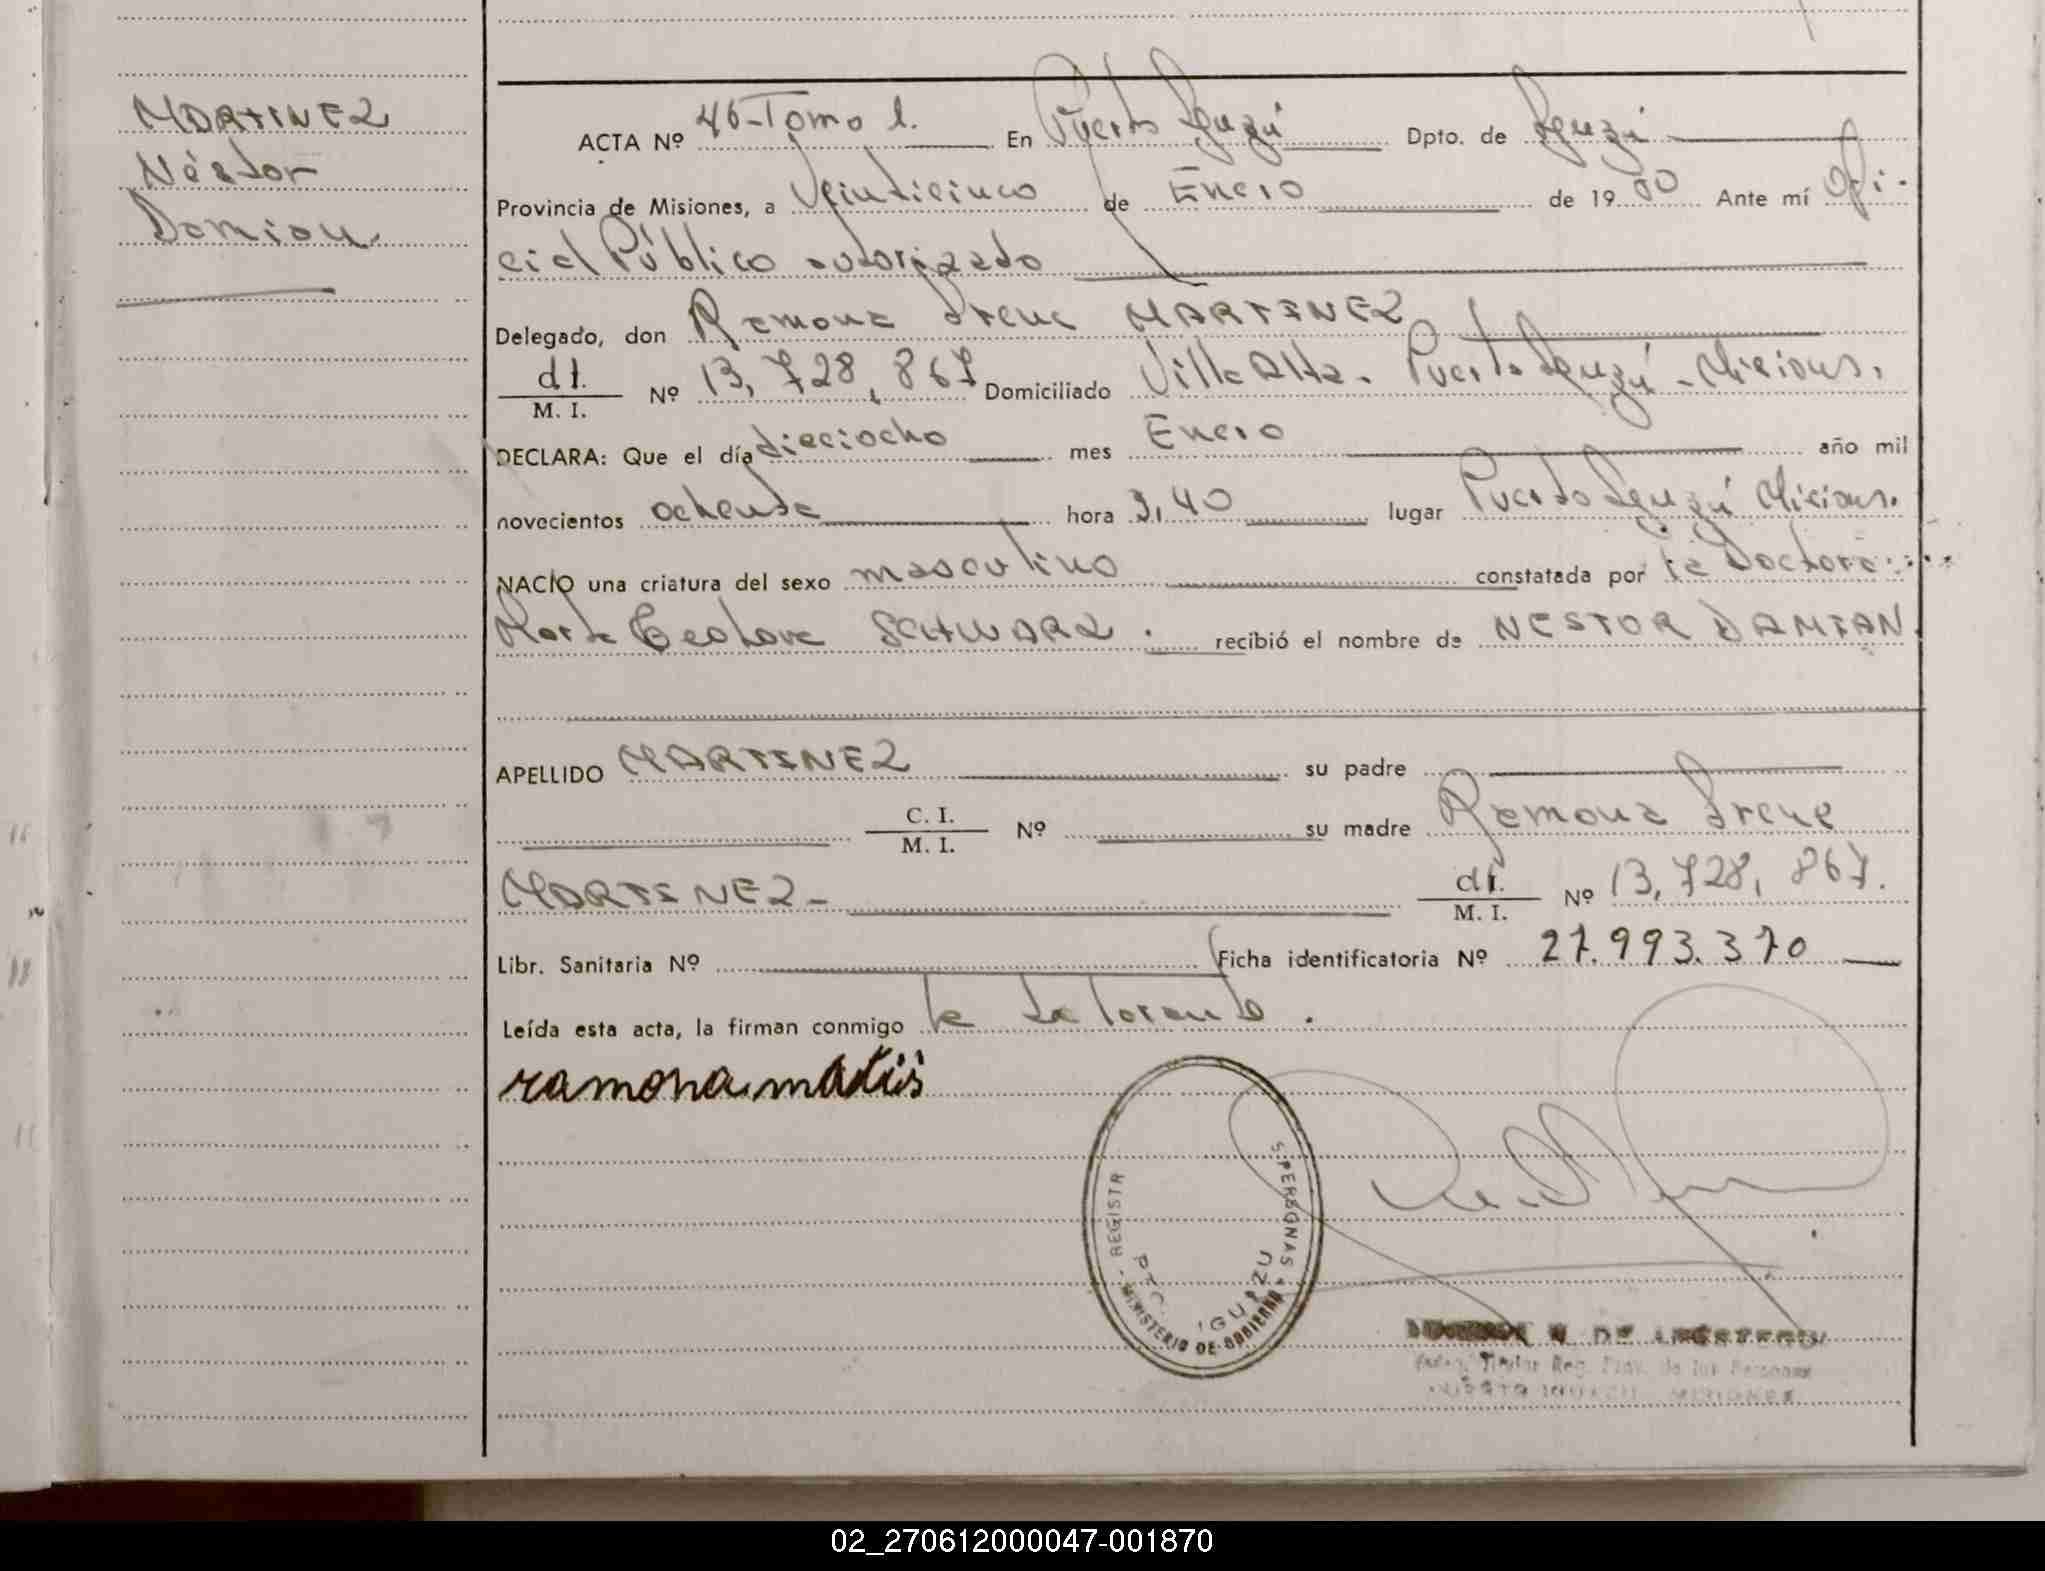 MARTINEZ
Néstor
Damian
ACTA Nº 46-Tomo 1. En Puerto Iguazú Dpto. de Iguazú
Provincia de Misiones, a Veinticinco de Enero de 1980 Ante mí Ofi-
cial Público autorizado
Delegado, don Ramona Irene MARTINEZ
dI.
M. I. Nº 13,728,867 Domiciliado Villa Alta - Puerto Iguazú - Misiones.
DECLARA: Que el día dieciocho mes Enero año mil
novecientos ochenta hora 3,40 lugar Puerto Iguazú Misiones.
NACIO una criatura del sexo masculino constatada por la Doctora
Marta SCHWARZ. recibió el nombre de NESTOR DAMIAN
APELLIDO MARTINEZ su padre
C. I.
M. I. Nº su madre Ramona Irene
MARTINEZ- dI.
M. I. Nº 13,728,867.
Libr. Sanitaria Nº Ficha identificatoria Nº 27.993.370
Leída esta acta, la firman conmigo la
ramona
REGISTR S PERSONAS
MINISTERIO DE GOBIERNO
PTO. IGUAZU
02_270612000047-001870